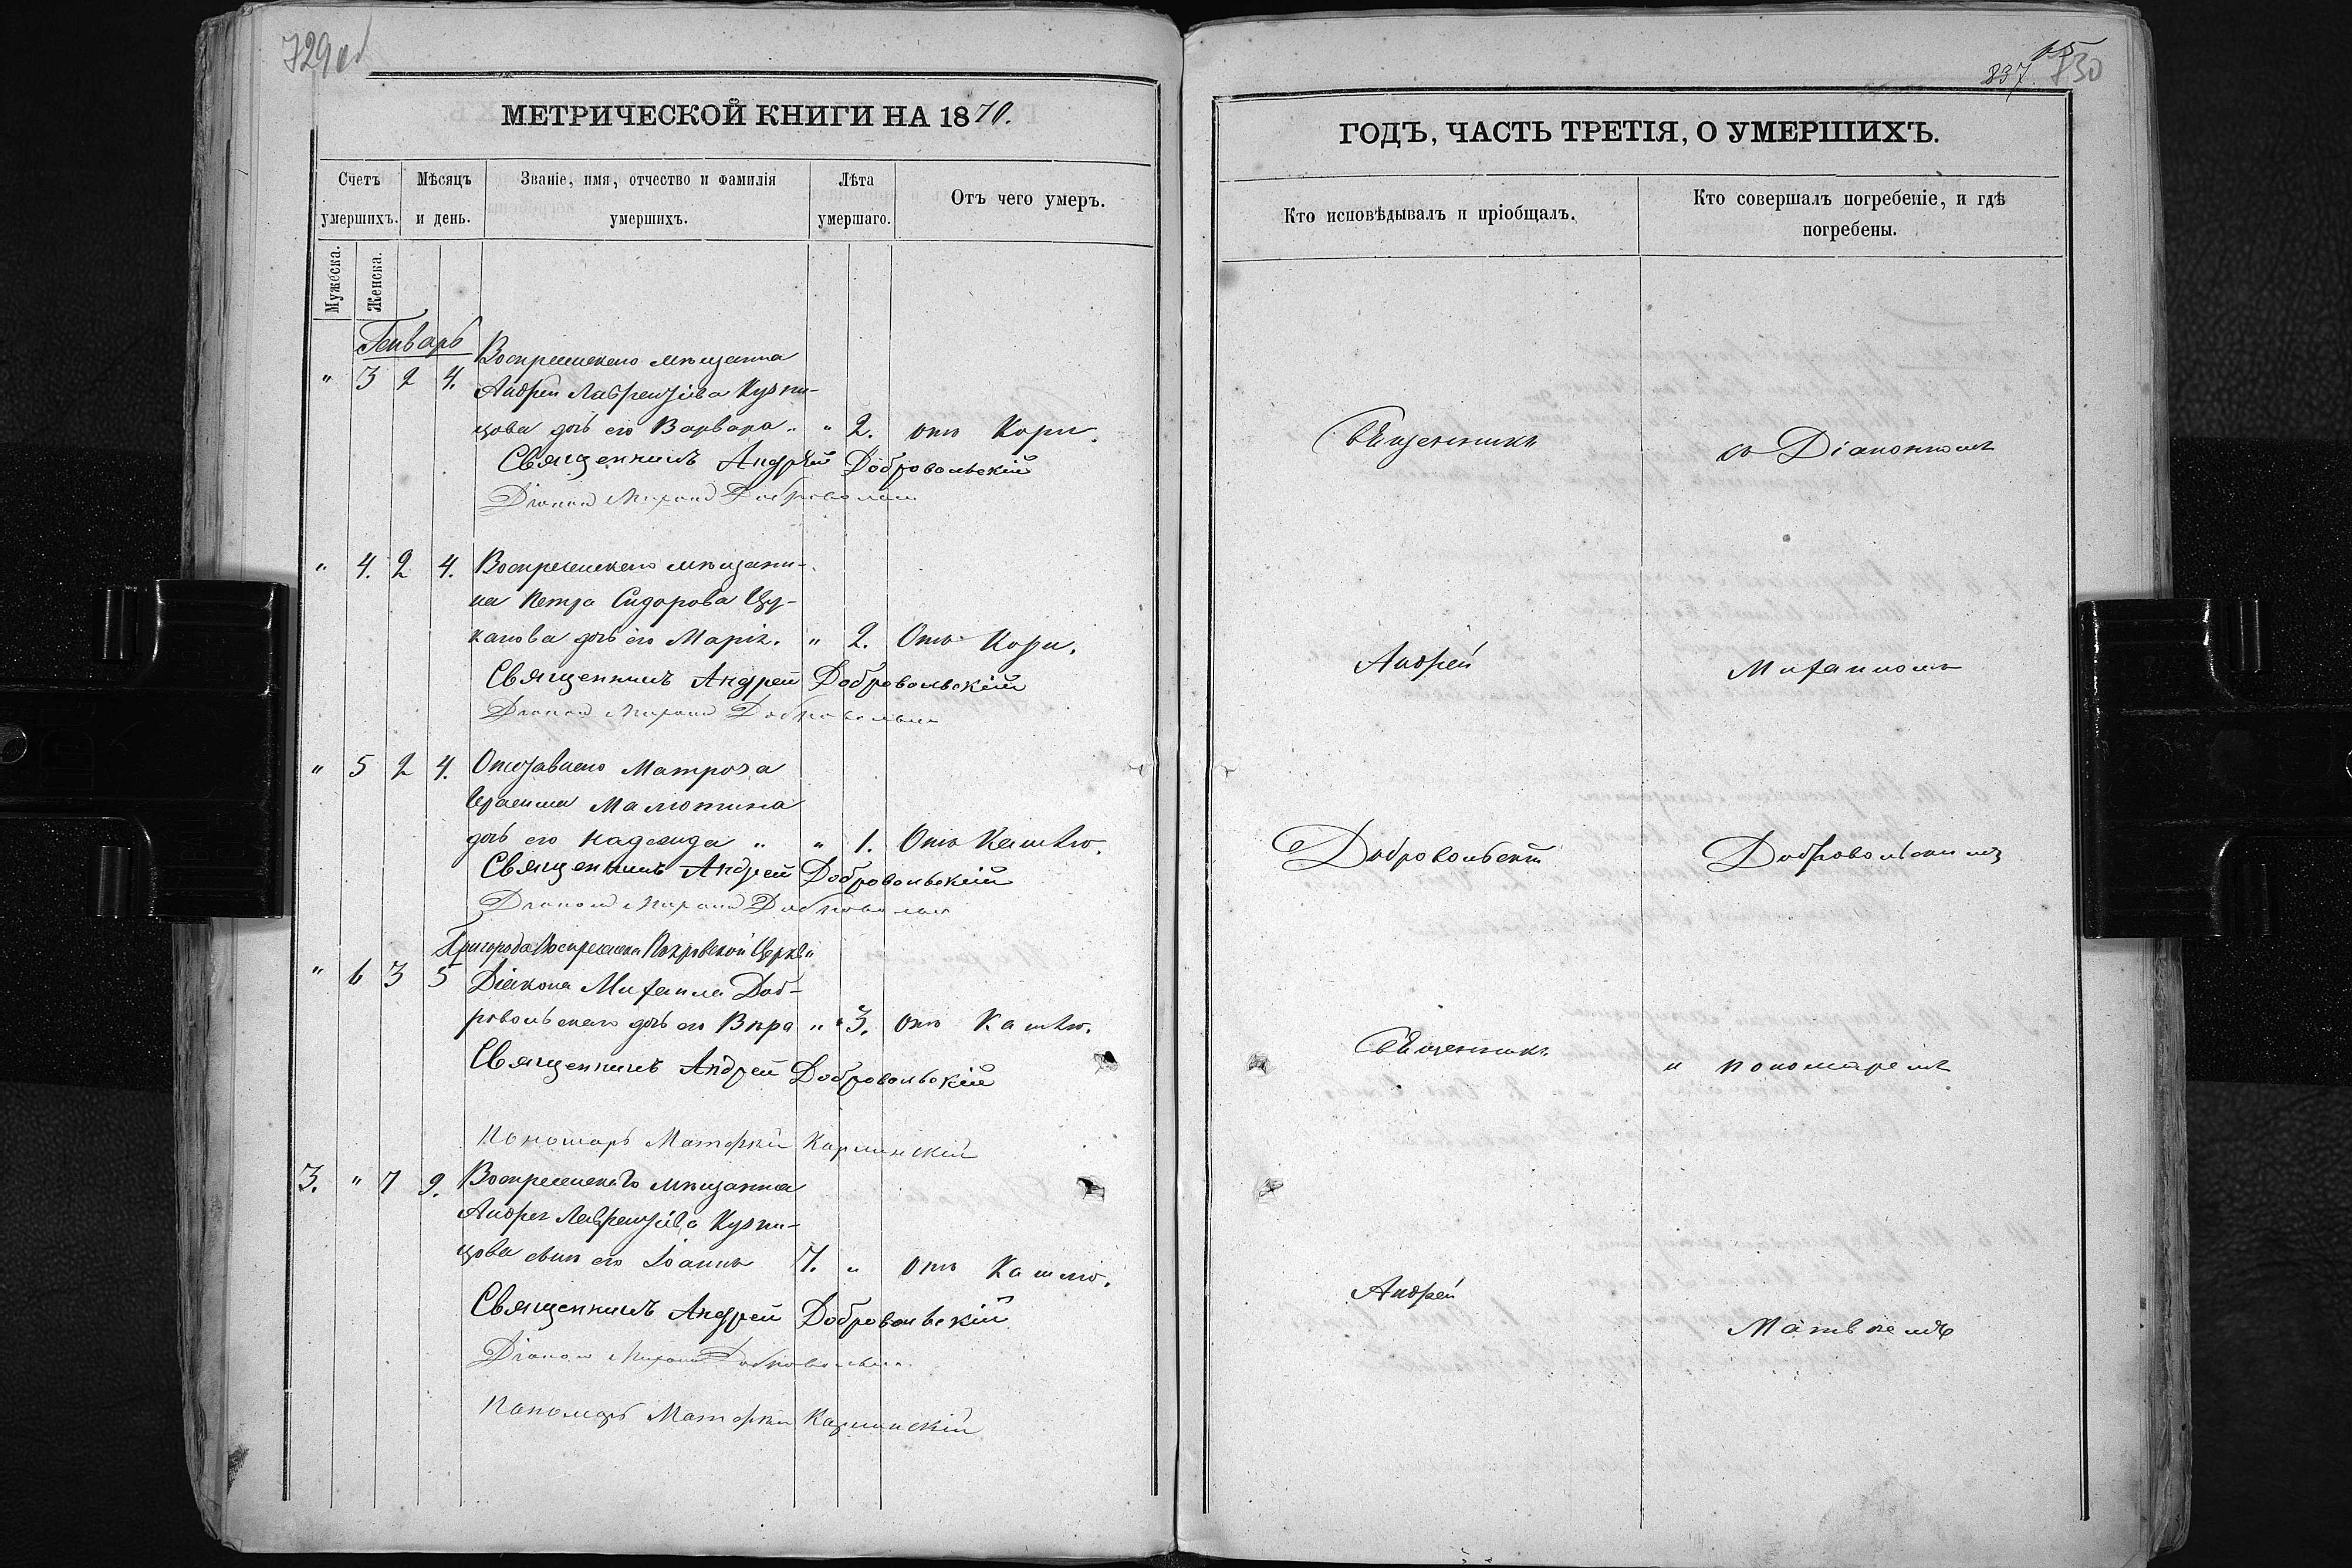 729об
МЕТРИЧЕСКОЙ КНИГИ НА 1870.
Счетъ умершихъ.
Мѣсяцъ и день.
Званіе, имя, отчество и фамилія умершихъ.
Лѣта умершаго.
Отъ чего умеръ.
Мужеска.
Женска.
Генварь
Воскресенскаго мѣщанина
" 3 2 4. Андрея Лаврентьева Кузне-
цова дочь его Варвара " " 2. отъ Кори.
Священникъ Андрей Добровольскій
Діаконъ Михаилъ Добровольскій
" 4. 2 4. Воскресенскаго мѣщани-
на Петра Сидорова Цу-
канова дочь его Марія. " 2. Отъ Кори.
Священникъ Андрей Добровольскій
Діаконъ Михаилъ Добровольскій
" 5 2 4. Отставнаго Матроза
Малютина
дочь его Надежда " " 1. Отъ Кашлю.
Священникъ Андрей Добровольскій
Діаконъ Михаилъ Добровольскій
Пригорода Воскресенска Покровской Церкви
" 6 3 5 Діакона Михаила Доб-
ровольскаго дочь его Вѣра " " 3. отъ Кашлю.
Священникъ Андрей Добровольскій
Пономарь Матвей Карлинскій
3. " 7 9. Воскресенскаго мѣщанина
Андрея Лаврентьева Кузне-
цова сынъ его Іоаннъ 7. " отъ Кашлю.
Священникъ Андрей Добровольскій
Діаконъ Михаилъ Добровольскій
Пономарь Матвей Карлинскій
837. 730
ГОДЪ, ЧАСТЬ ТРЕТІЯ, О УМЕРШИХЪ.
Кто исповѣдывалъ и пріобщалъ.
Кто совершалъ погребеніе, и гдѣ погребены.
Священникъ
со Діакономъ
Андрей
Михаиломъ
Добровольскій
Добровольскимъ
Священникъ
и пономаремъ
Андрей
Матвеемъ